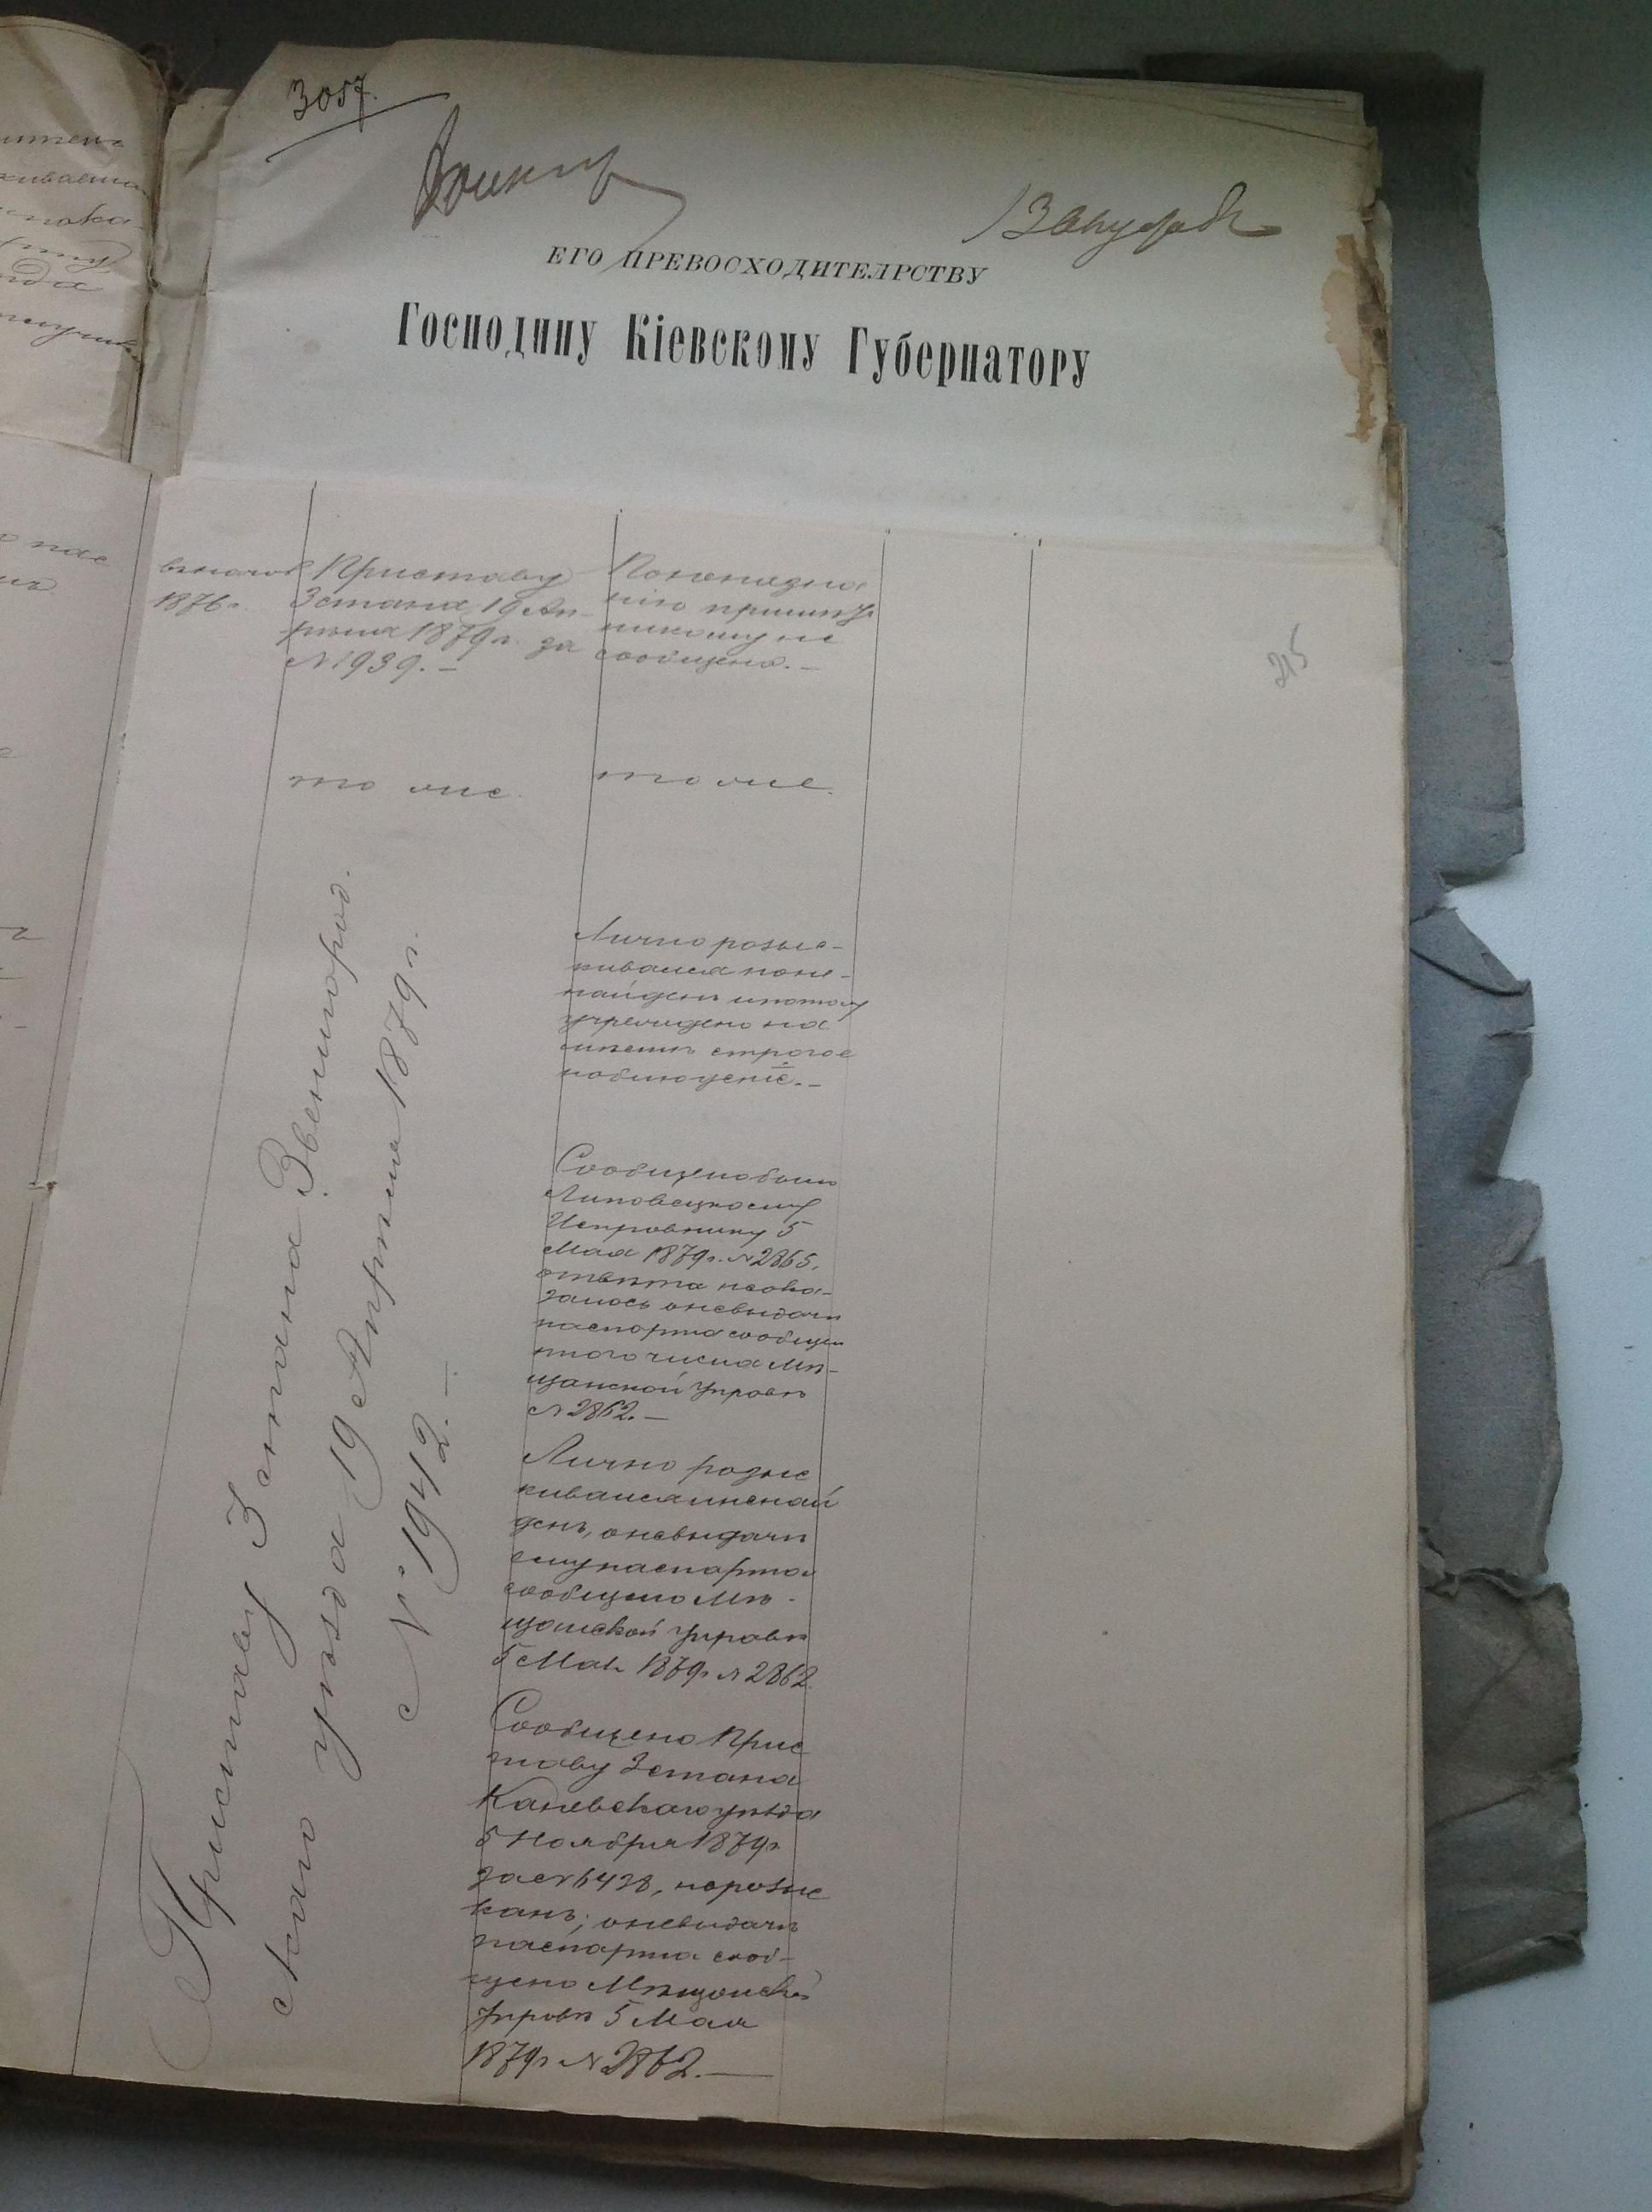 3057.
ЕГО ПРЕВОСХОДИТЕЛЬСТВУ
Господину Кіевскому Губернатору
215
вначалѣ
1876 г.
Приставу
3 стана 19 Ап-
рѣля 1879 г. за
№ 1939. —
По неимѣ
нію
никому не
сообщено. —
то же.
то же.
Приставу 3 стана Звенигород.
скаго уѣзда 19 Апрѣля 1879 г.
№ 1942. —
Лично розыс-
кивался но не-
найденъ и потому
учреждено на
строгое
наблюденіе. —
Сообщено было
Липовецкому
Исправнику 5
Мая 1879 г. № 2865,
отвѣта не ока-
залось о невыдачи
паспорта сообщен
того числа Мѣ-
щанской Управѣ
№ 2862. —
Лично розыс
кивался и не най
денъ, о невыдачи
ему паспорта
сообщено Мѣ-
щанской Управѣ
5 Мая 1879 г. № 2862.
Сообщено Прис
таву 3 стана
Каневскаго уѣзда
5 Ноября 1879 г.
за № 6428, не розыс
канъ; о невыдачи
паспорта сооб-
щено Мѣщанской
Управѣ 5 Мая
1879 г. № 2862. —